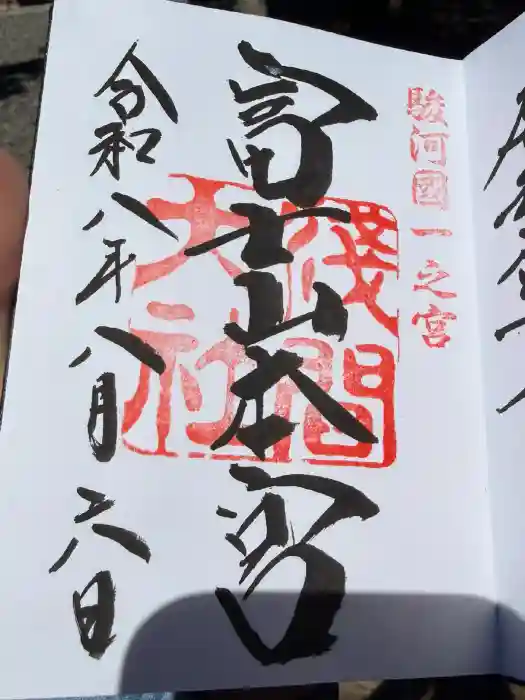 駿河國一之宮
富士山本宮
淺間大社
令和八年八月六日